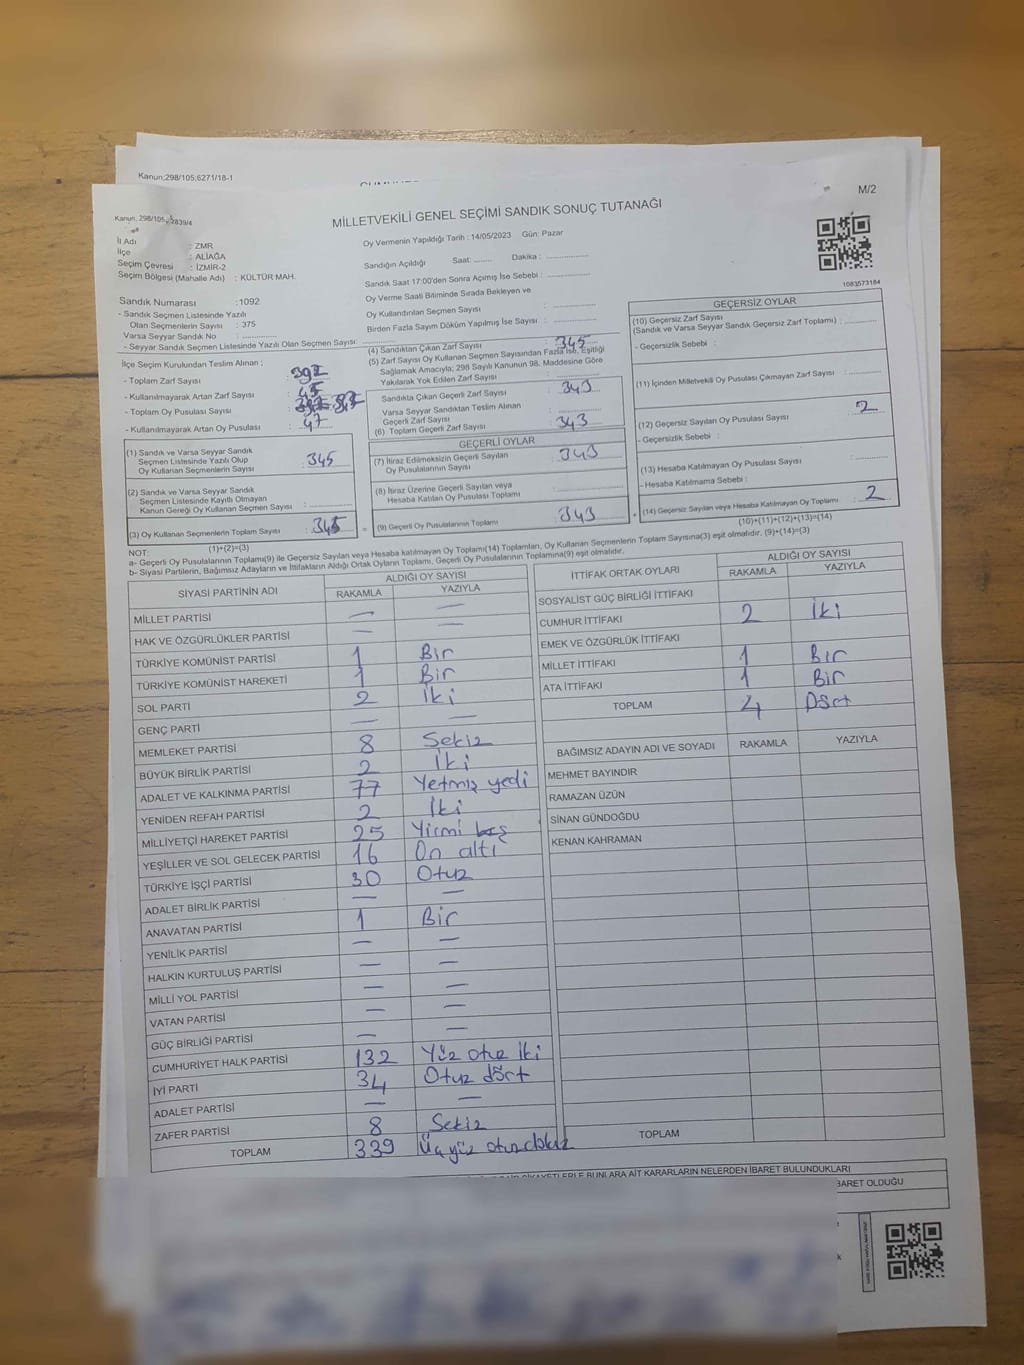 Kanun;298/105;6271/18-1
M/2
Kanun, 298/105, 2839/4
MİLLETVEKİLİ GENEL SEÇİMİ SANDIK SONUÇ TUTANAĞI
İl Adı : ZMR
İlçe : ALİAĞA
Seçim Çevresi : İZMİR-2
Seçim Bölgesi (Mahalle Adı) : KÜLTÜR MAH.
Oy Vermenin Yapıldığı Tarih : 14/05/2023 Gün: Pazar
Sandığın Açıldığı Saat: ........ Dakika : ................
Sandık Saat 17:00'den Sonra Açımış İse Sebebi : ................
Oy Verme Saati Bitiminde Sırada Bekleyen ve
Oy Kullandırılan Seçmen Sayısı : ................
Birden Fazla Sayım Döküm Yapılmış İse Sayısı : ................
1083573184
Sandık Numarası :1092
- Sandık Seçmen Listesinde Yazılı
Olan Seçmenlerin Sayısı : 375
Varsa Seyyar Sandık No : ................
- Seyyar Sandık Seçmen Listesinde Yazılı Olan Seçmen Sayısı: ................
İlçe Seçim Kurulundan Teslim Alınan ;
- Toplam Zarf Sayısı : 392
- Kullanılmayarak Artan Zarf Sayısı : 45
- Toplam Oy Pusulası Sayısı :
- Kullanılmayarak Artan Oy Pusulası : 47
(1) Sandık ve Varsa Seyyar Sandık
Seçmen Listesinde Yazılı Olup
Oy Kullanan Seçmenlerin Sayısı : 345
(2) Sandık ve Varsa Seyyar Sandık
Seçmen Listesinde Kayıtlı Olmayan
Kanun Gereği Oy Kullanan Seçmen Sayısı : ................
(3) Oy Kullanan Seçmenlerin Toplam Sayısı : 345
(1)+(2)=(3)
(4) Sandıktan Çıkan Zarf Sayısı : 345
(5) Zarf Sayısı Oy Kullanan Seçmen Sayısından Fazla İse, Eşitliği
Sağlamak Amacıyla; 298 Sayılı Kanunun 98. Maddesine Göre
Yakılarak Yok Edilen Zarf Sayısı : ................
Sandıkta Çıkan Geçerli Zarf Sayısı : 343
Varsa Seyyar Sandıktan Teslim Alınan
Geçerli Zarf Sayısı : ................
(6) Toplam Geçerli Zarf Sayısı : 343
GEÇERLİ OYLAR
(7) İtiraz Edilmeksizin Geçerli Sayılan
Oy Pusulalarının Sayısı : 343
(8) İtiraz Üzerine Geçerli Sayılan veya
Hesaba Katılan Oy Pusulası Toplamı : ................
= (9) Geçerli Oy Pusulalarının Toplamı : 343
GEÇERSİZ OYLAR
(10) Geçersiz Zarf Sayısı
(Sandık ve Varsa Seyyar Sandık Geçersiz Zarf Toplamı) : ................
- Geçersizlik Sebebi :
(11) İçinden Milletvekili Oy Pusulası Çıkmayan Zarf Sayısı : ................
(12) Geçersiz Sayılan Oy Pusulası Sayısı : 2
- Geçersizlik Sebebi :
(13) Hesaba Katılmayan Oy Pusulası Sayısı : ................
- Hesaba Katılmama Sebebi :
+ (14) Geçersiz Sayılan veya Hesaba Katılmayan Oy Toplamı : 2
(10)+(11)+(12)+(13)=(14)
NOT:
a- Geçerli Oy Pusulalarının Toplamı(9) ile Geçersiz Sayılan veya Hesaba katılmayan Oy Toplamı(14) Toplamları, Oy Kullanan Seçmenlerin Toplam Sayısına(3) eşit olmalıdır. (9)+(14)=(3)
b- Siyasi Partilerin, Bağımsız Adayların ve İttifakların Aldığı Ortak Oyların Toplamı, Geçerli Oy Pusulalarının Toplamına(9) eşit olmalıdır.
SİYASİ PARTİNİN ADI ALDIĞI OY SAYISI
RAKAMLA YAZIYLA
MİLLET PARTİSİ — —
HAK VE ÖZGÜRLÜKLER PARTİSİ — —
TÜRKİYE KOMÜNİST PARTİSİ 1 Bir
TÜRKİYE KOMÜNİST HAREKETİ 1 Bir
SOL PARTİ 2 İki
GENÇ PARTİ — —
MEMLEKET PARTİSİ 8 Sekiz
BÜYÜK BİRLİK PARTİSİ 2 İki
ADALET VE KALKINMA PARTİSİ 77 Yetmiş yedi
YENİDEN REFAH PARTİSİ 2 İki
MİLLİYETÇİ HAREKET PARTİSİ 25 Yirmi beş
YEŞİLLER VE SOL GELECEK PARTİSİ 16 On altı
TÜRKİYE İŞÇİ PARTİSİ 30 Otuz
ADALET BİRLİK PARTİSİ — —
ANAVATAN PARTİSİ 1 Bir
YENİLİK PARTİSİ — —
HALKIN KURTULUŞ PARTİSİ — —
MİLLİ YOL PARTİSİ — —
VATAN PARTİSİ — —
GÜÇ BİRLİĞİ PARTİSİ — —
CUMHURİYET HALK PARTİSİ 132 Yüz otuz iki
İYİ PARTİ 34 Otuz dört
ADALET PARTİSİ — —
ZAFER PARTİSİ 8 Sekiz
TOPLAM 339 Üçyüz otuzdokuz
İTTİFAK ORTAK OYLARI ALDIĞI OY SAYISI
RAKAMLA YAZIYLA
SOSYALİST GÜÇ BİRLİĞİ İTTİFAKI
CUMHUR İTTİFAKI 2 İki
EMEK VE ÖZGÜRLÜK İTTİFAKI
MİLLET İTTİFAKI 1 Bir
ATA İTTİFAKI 1 Bir
TOPLAM 4 Dört
BAĞIMSIZ ADAYIN ADI VE SOYADI RAKAMLA YAZIYLA
MEHMET BAYINDIR
RAMAZAN ÜZÜN
SİNAN GÜNDOĞDU
KENAN KAHRAMAN
TOPLAM
ŞİKAYETLERLE BUNLARA AİT KARARLARIN NELERDEN İBARET BULUNDUKLARI
BARET OLDUĞU